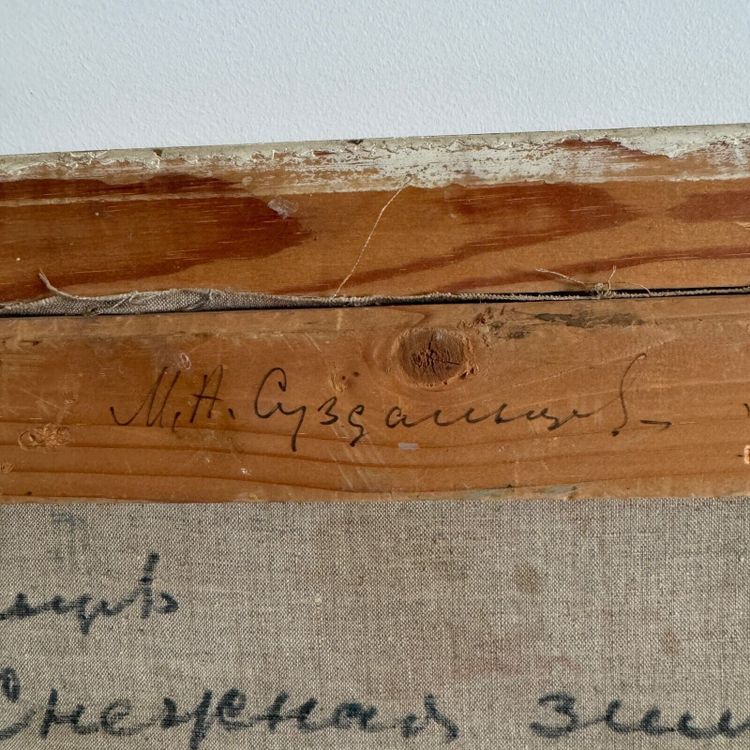 М.А. Суздальцев
Снежная зим